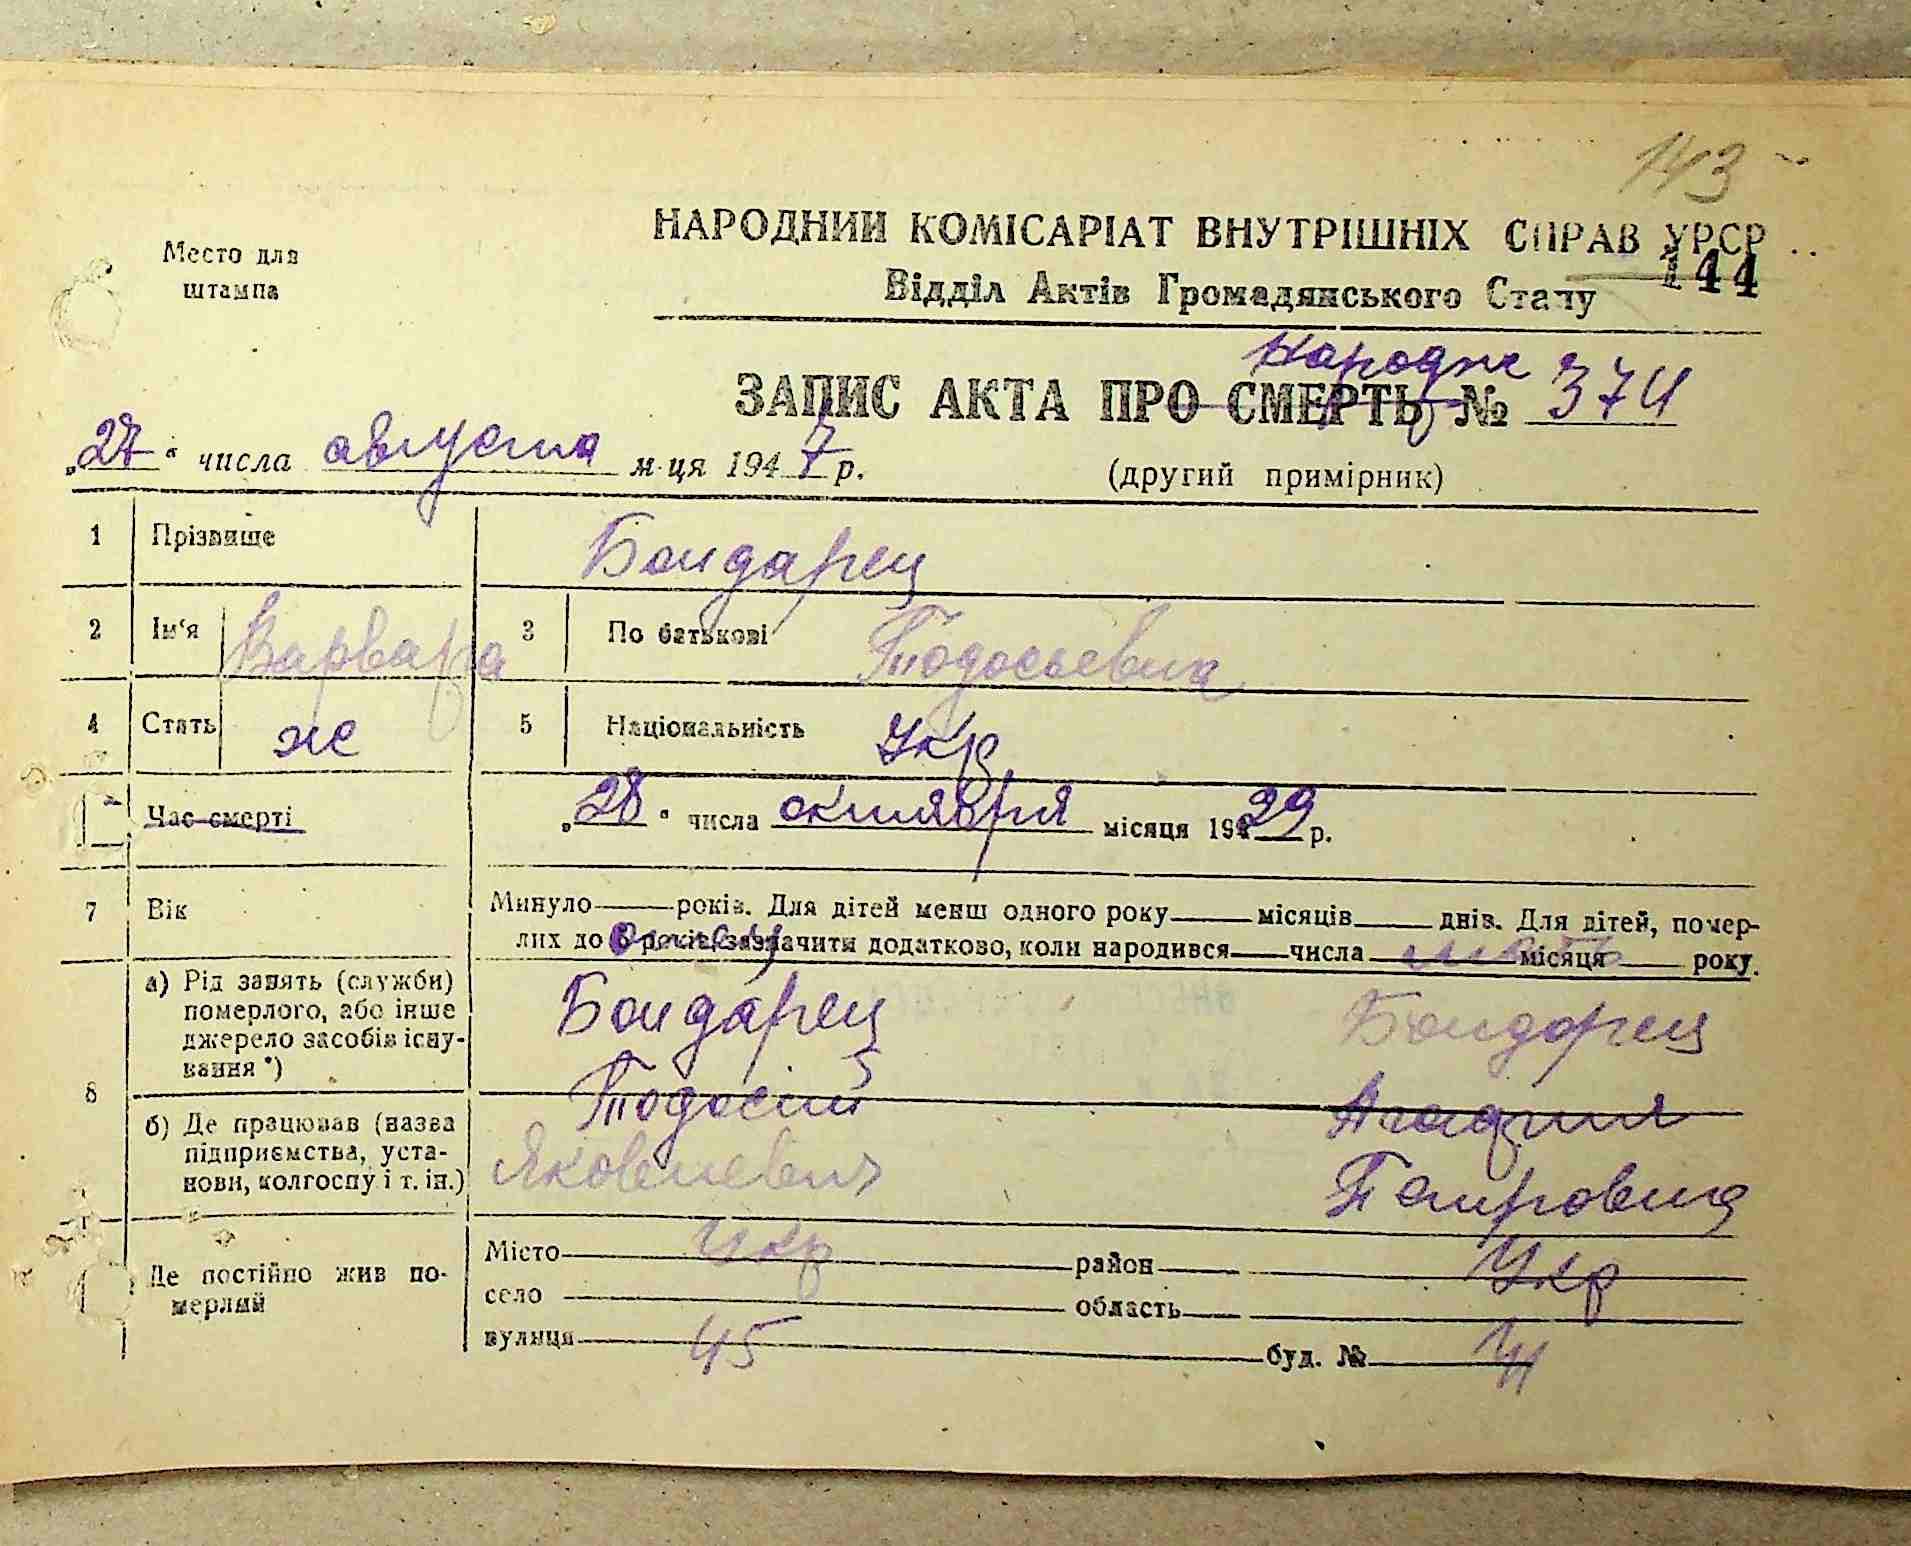 143
НАРОДНИЙ КОМІСАРІАТ ВНУТРІШНІХ СПРАВ УРСР
Место для штампа
144
Відділ Актів Громадянського Стану
народж
ЗАПИС АКТА ПРО СМЕРТЬ № 374
"27" числа августа м-ця 1947 р. (другий примірник)
1 Прізвище Бондарец
2 Ім'я Варвара 3 По батькові Тодосьевна
4 Стать ж 5 Національність Укр
Час смерті "28" числа октября місяця 1929 р.
7 Вік Минуло років. Для дітей менш одного року місяців днів. Для дітей, помер-
лих до 5 років, зазначити додатково, коли народився числа місяця року.
отец мать
8 а) Рід занять (служби) померлого, або інше джерело засобів існу-вання *)
Бондарец Бондарец
Тодосий Агафия
б) Де працював (назва підприємства, уста-нови, колгоспу і т. ін.)
Яковлевич Петровна
Де постійно жив по-мерлий
Місто Укр район Укр
село область
вулиця 45 буд. № 41